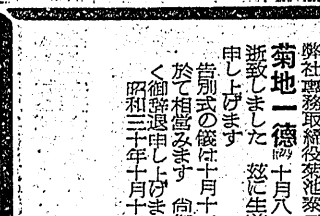 弊社専務取締役菊池泰
菊地一徳儀十月八
逝致しました 玆に生
申し上げます
告別式の儀は十月十
於て相営みます 尚
く御辞退申し上げま
昭和三十年十月十